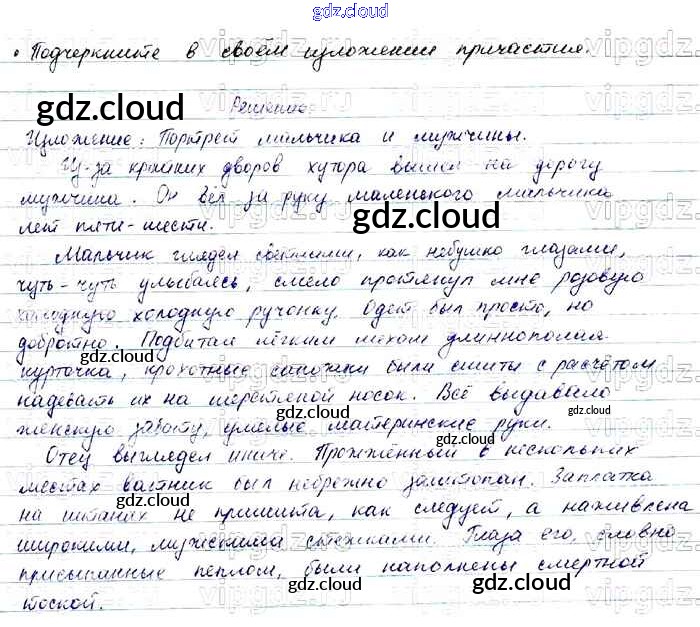 gdz.cloud
• Подчеркните в своём изложении причастия.
gdz.cloud
Решение:
Изложение: Портрет мальчика и мужчины.
Из-за крайних дворов хутора вышел на дорогу
мужчина. Он вёл за руку маленького мальчика
лет пяти-шести.
gdz.cloud
Мальчик глядел светлыми, как небушко глазами,
чуть-чуть улыбаясь, смело протянул мне розовую
холодную ручонку. Одет был просто, но
gdz.cloud
добротно. Подбитая лёгким мехом длиннополая
gdz.cloud
курточка, крохотные сапожки были сшиты с расчётом
надевать их на шерстяной носок. Всё выдавало
gdz.cloud
gdz.cloud
женскую заботу, умелые материнские руки.
Отец выглядел иначе. Прожжённый в нескольких
местах ватник был небрежно заштопан. Заплатка
gdz.cloud
на штанах не пришита, как следует, а наживлена
широкими, мужскими стежками. Глаза его, словно
присыпанные пеплом, были наполнены смертной
gdz.cloud
тоской.